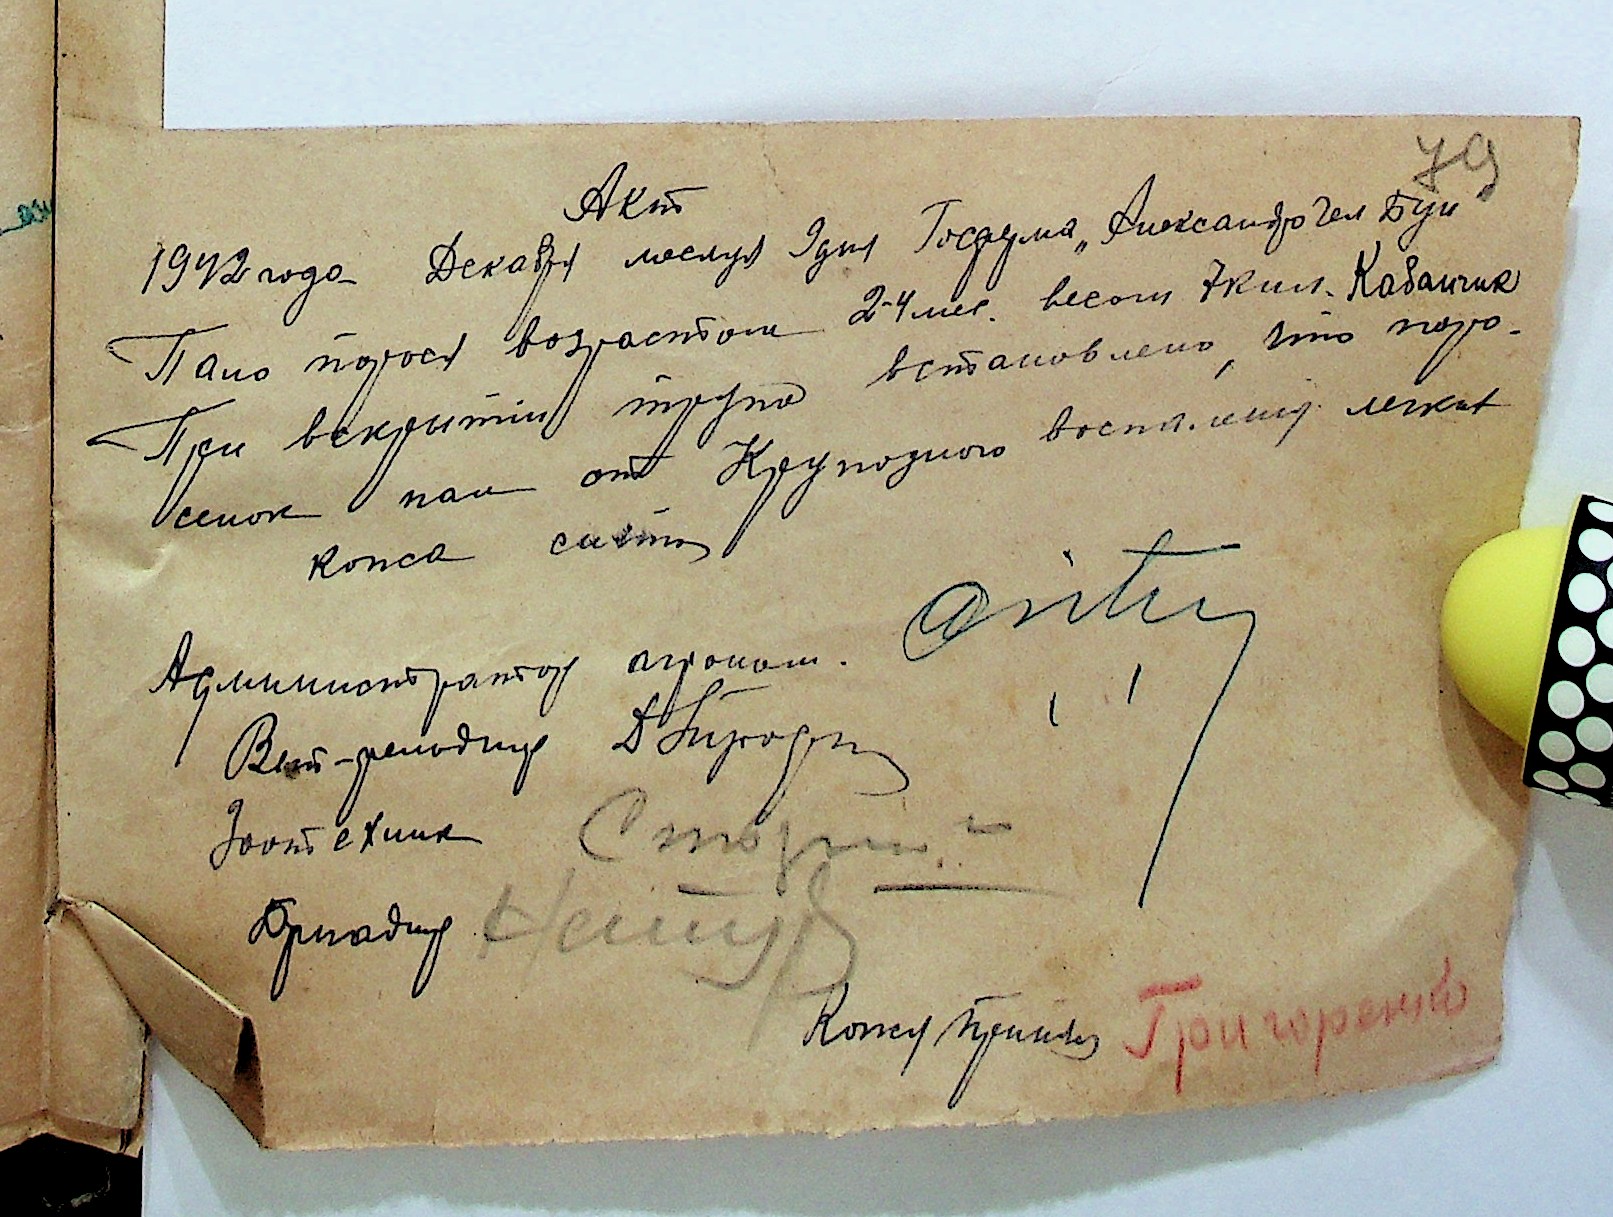 79
Акт
1942 года Декабря месяця 9 дня Госдума „Александро
Пало порося возрастом 2-4 мес. весом 7 кил. Кабанчик
При вскрытии трупа встановлено, што поро-
сенок пал от Крупозного воспаления легких
кожа снята
Администратор агроном.
Вет-фельдшер
Зоотехник
Бригадир
Кожу принял Григоренко